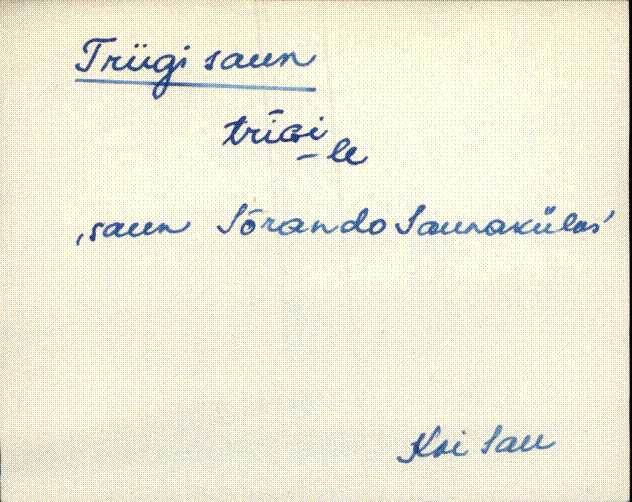 Trügi saun
trīGi
– le
‚saun Sõrando Saunakülas’
Koi Sau